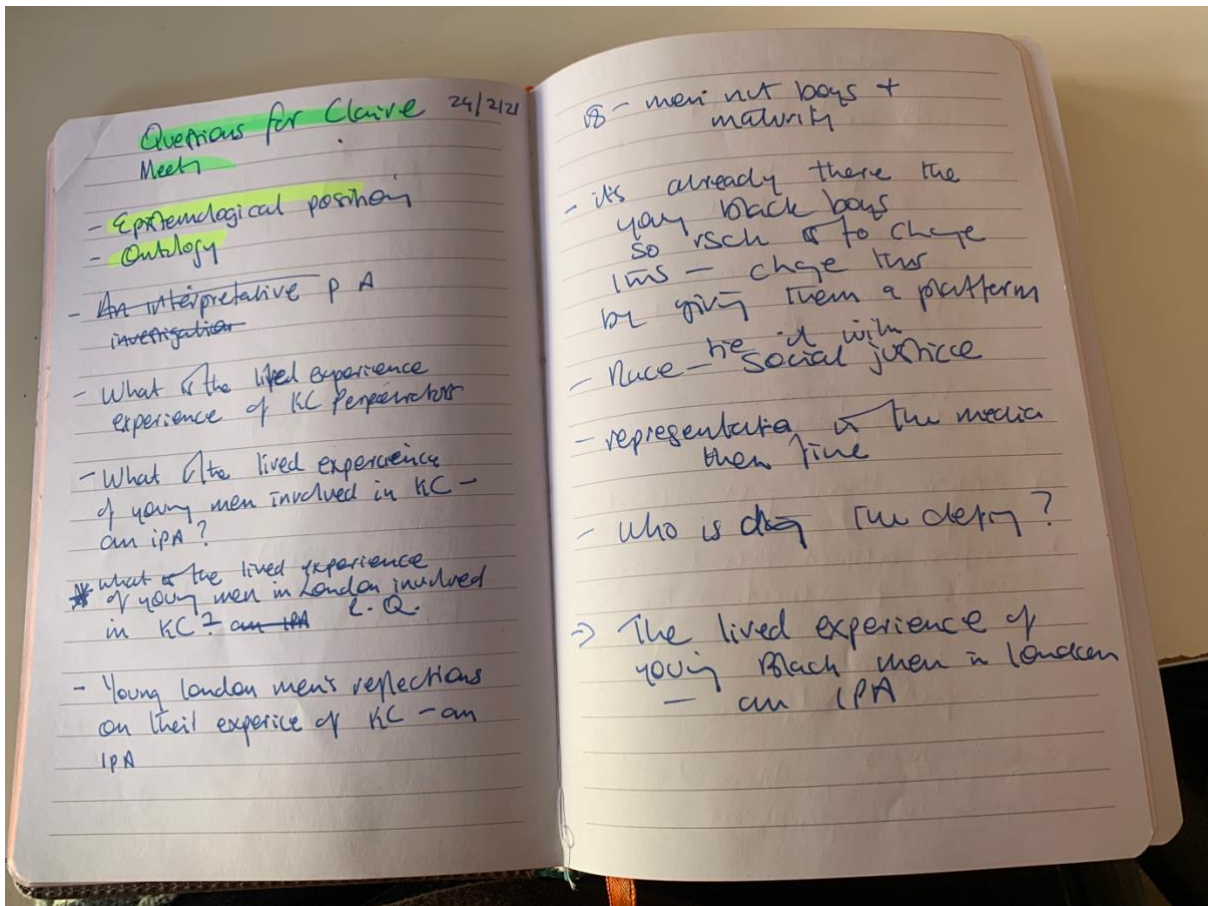 Questions for Claire 24/2/21
Meeting
- Epistemological positioning
- Ontology
- An interpretative P A
investigation
- What is the lived experience
experience of KC Perpetrators
- What is the lived experience
of young men involved in KC -
an iPA?
* What is the lived experience
of young men in London involved
in KC? an IPA
- Young London men's reflections
on their experice of KC - an
IPA
18 - men not boys +
maturity
- it's already there the
young black boys
so rsch is to change
this - change this
by giving them a platform
- Race - tie it with
social justice
- representation of the media
then fine
- Who is the ?
→ The lived experience of
young Black men in London
- an IPA